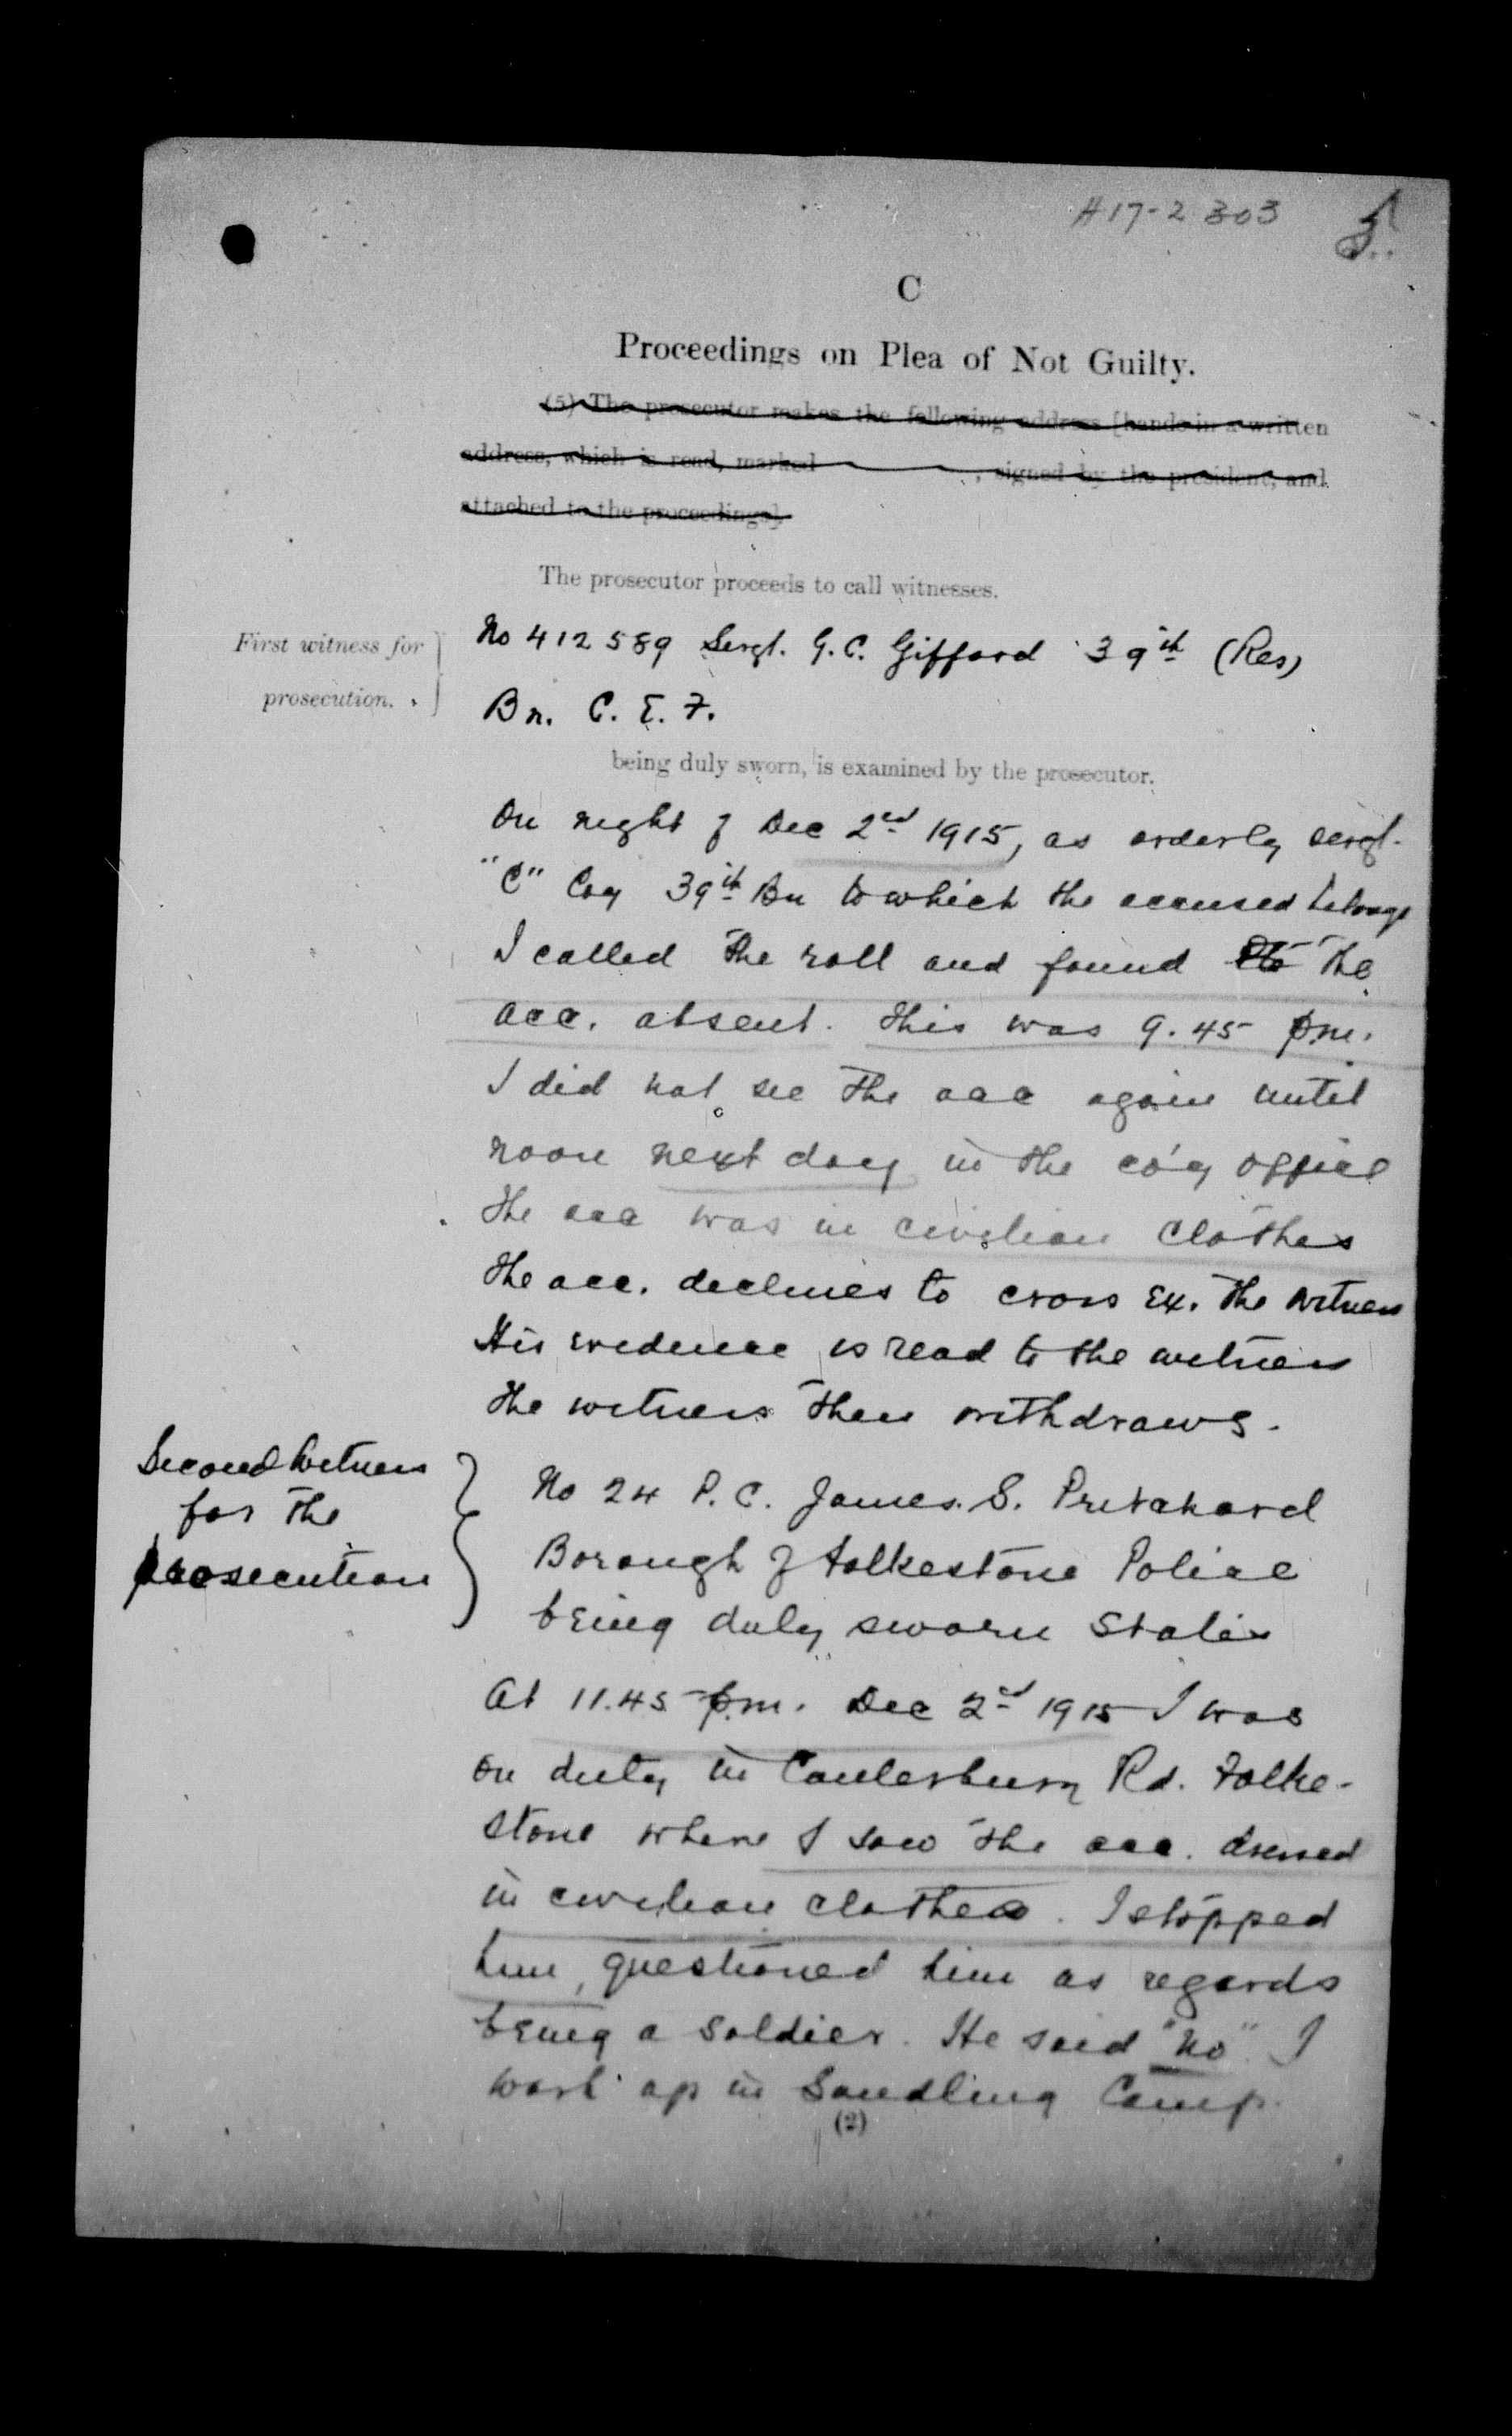 H17-2 303
C
Proceedings on Plea of Not Guilty.
(5) The prosecutor makes the following address [hands in a written
address, which is read, marked , signed by the president, and
attached to the proceedings]
The prosecutor proceeds to call witnesses.
First witness for
prosecution.
No 412589 Sergt. G. C. Gifford 39th (Res)
Bn. C. E. F.
being duly sworn, is examined by the prosecutor.
On night of Dec 2nd 1915, as orderly sergt.
"C" Coy 39th Bn to which the accused belongs
I called the roll and found Pte the
acc. absent. This was 9.45 p.m.
I did not see the acc again until
noon next day in the co'y office
The acc was in civilian clothes
The acc. declines to cross Ex. the witness
His evidence is read to the witness
The witness then withdraws.
Second witness
for the
prosecution
No 24 P. C. James. S. Pritchard
Borough of Folkestone Police
being duly sworn states
At 11.45 p.m. Dec 2nd 1915 I was
on duty in Canterbury Rd. Folke-
stone where I saw the acc. dressed
in civilian clothes. I stopped
him, questioned him as regards
being a soldier. He said "No" I
work up in Sandling Camp.
(2)